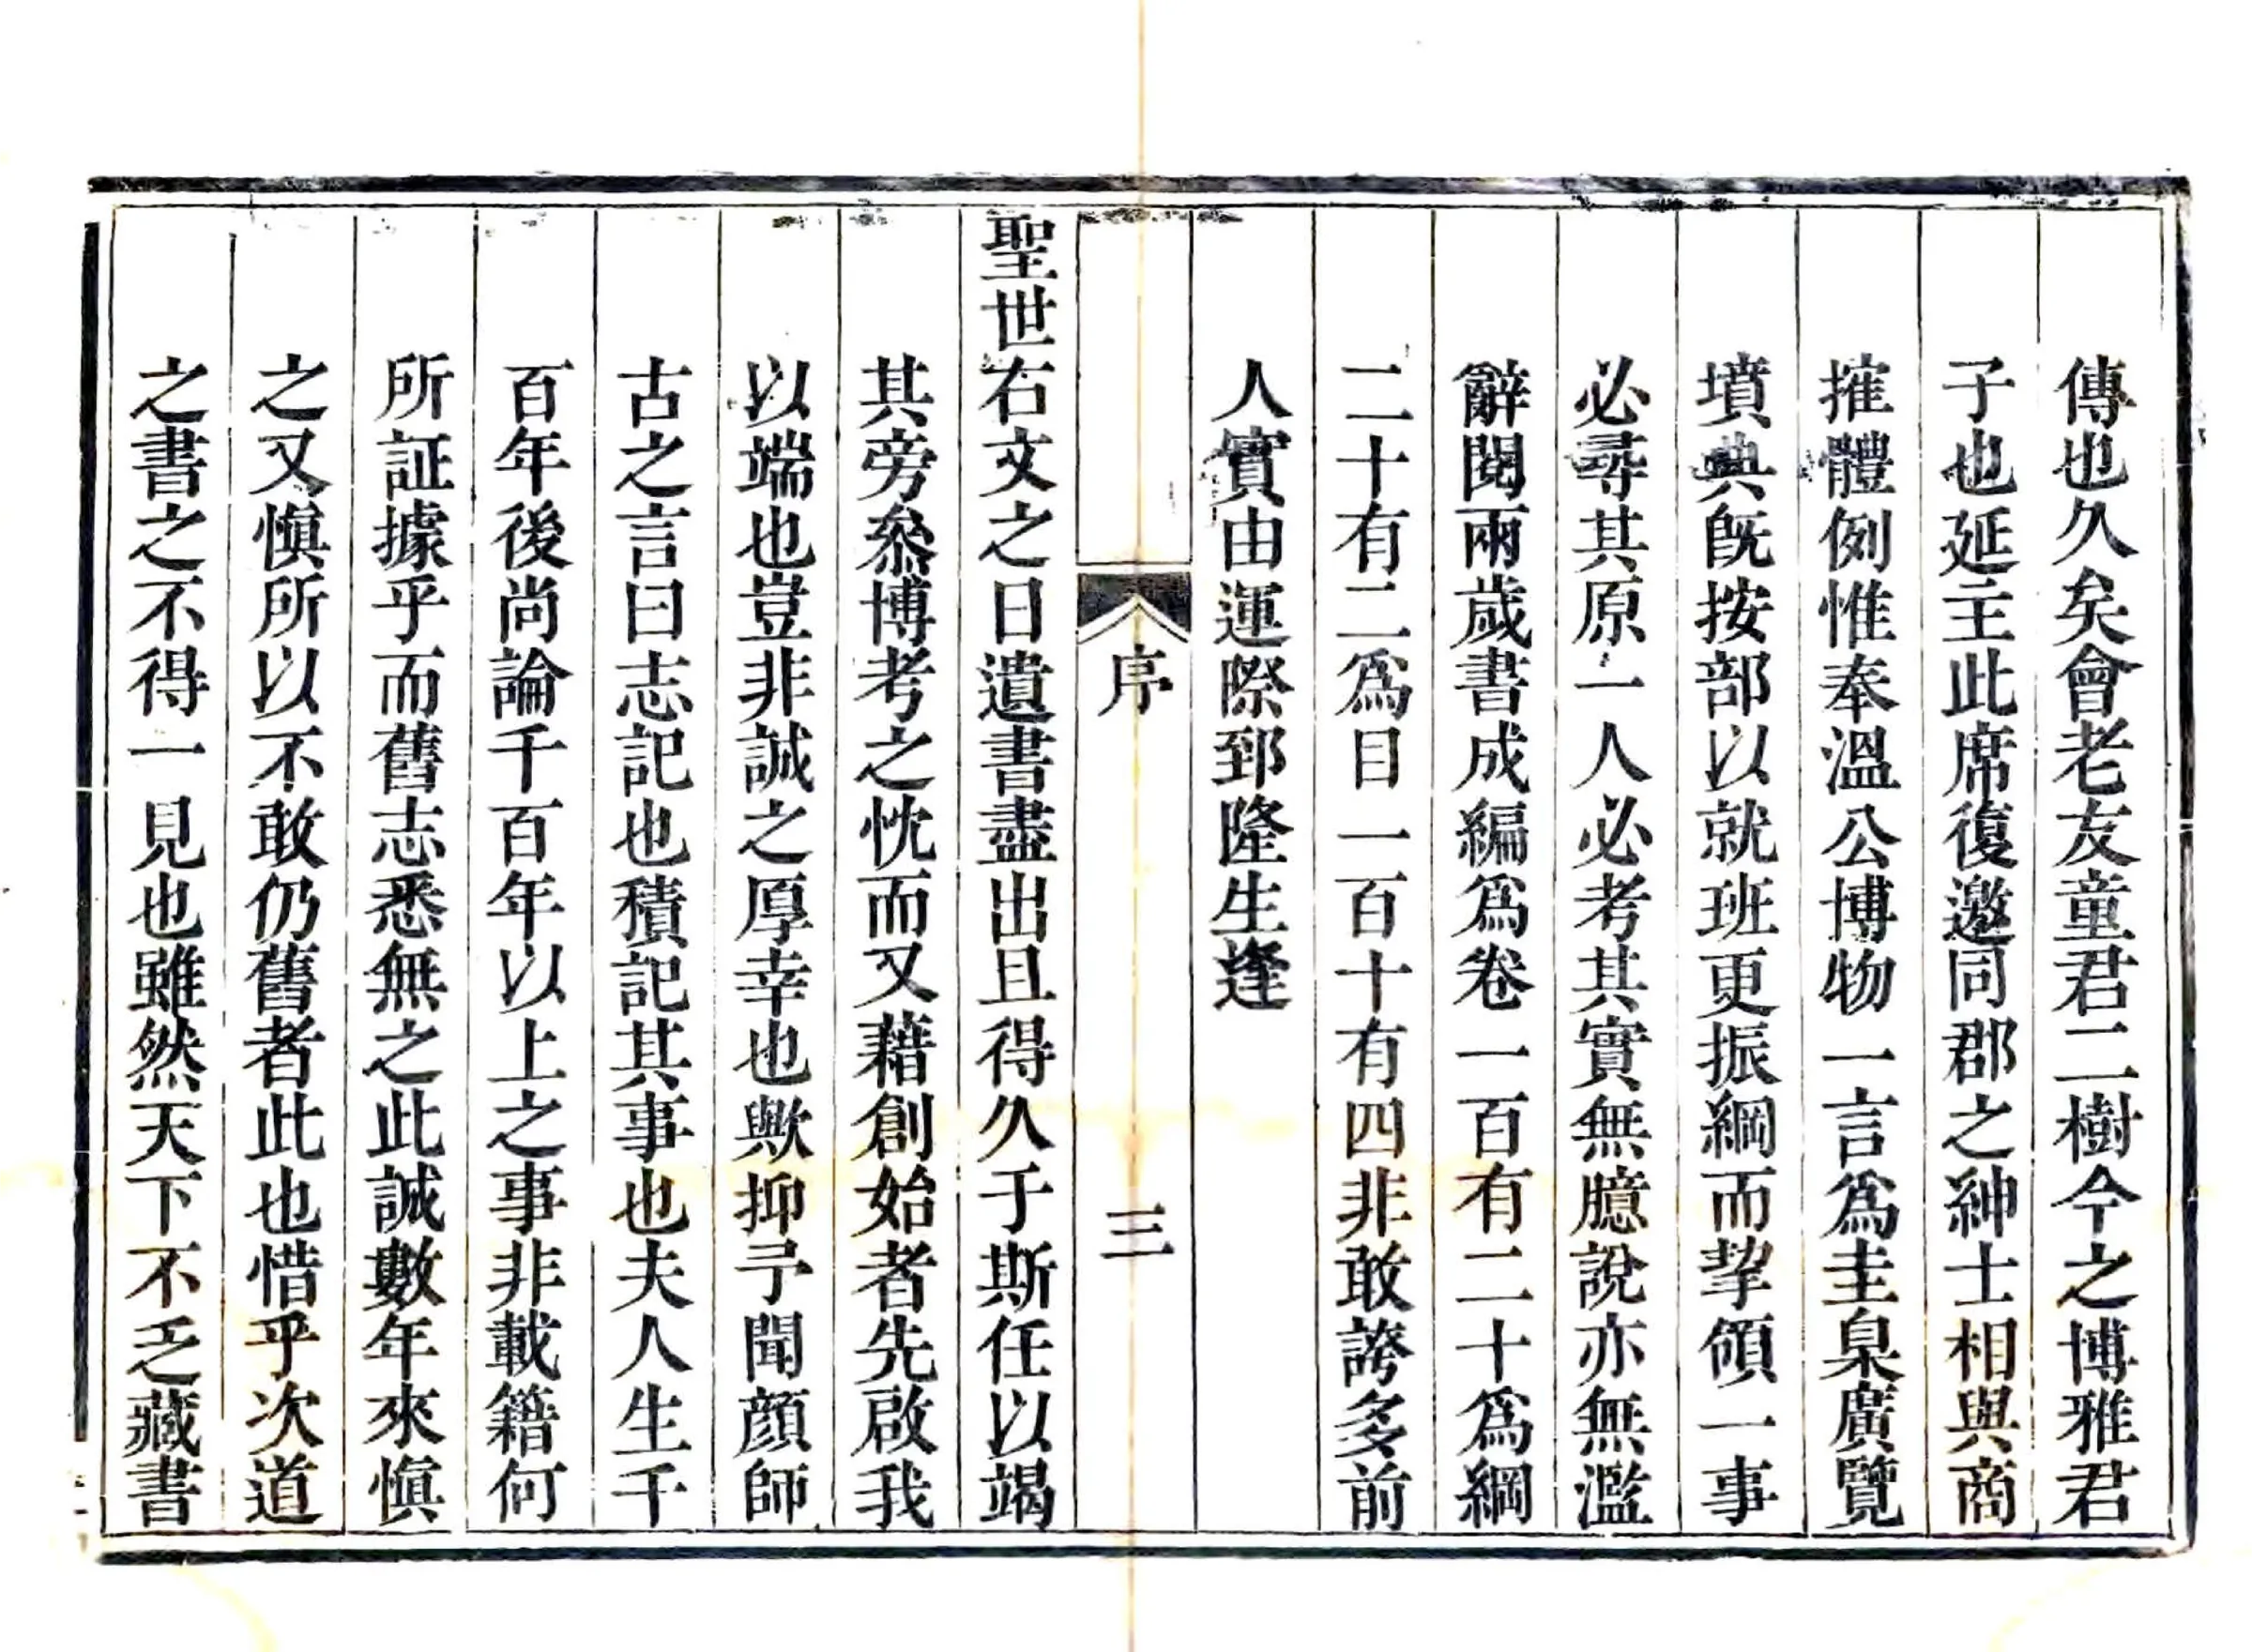 傳也久矣會老友童君二樹今之博雅君
子也延主此席復邀同郡之紳士相與商
搉體例惟奉溫公博物一言爲圭臬廣覽
墳典既按部以就班更振綱而挈領一事
必尋其原一人必考其實無臆說亦無濫
辭閱兩歲書成編爲卷一百有二十爲綱
二十有二爲目一百十有四非敢誇多前
人實由運際郅隆生逢
序 三
聖世右文之日遺書盡出且得久于斯任以竭
其旁叅博考之忱而又藉創始者先啟我
以端也豈非誠之厚幸也歟抑予聞顔師
古之言曰志記也積記其事也夫人生千
百年後尚論千百年以上之事非載籍何
所証據乎而舊志悉無之此誠數年來愼
之又愼所以不敢仍舊者此也惜乎次道
之書之不得一見也雖然天下不乏藏書